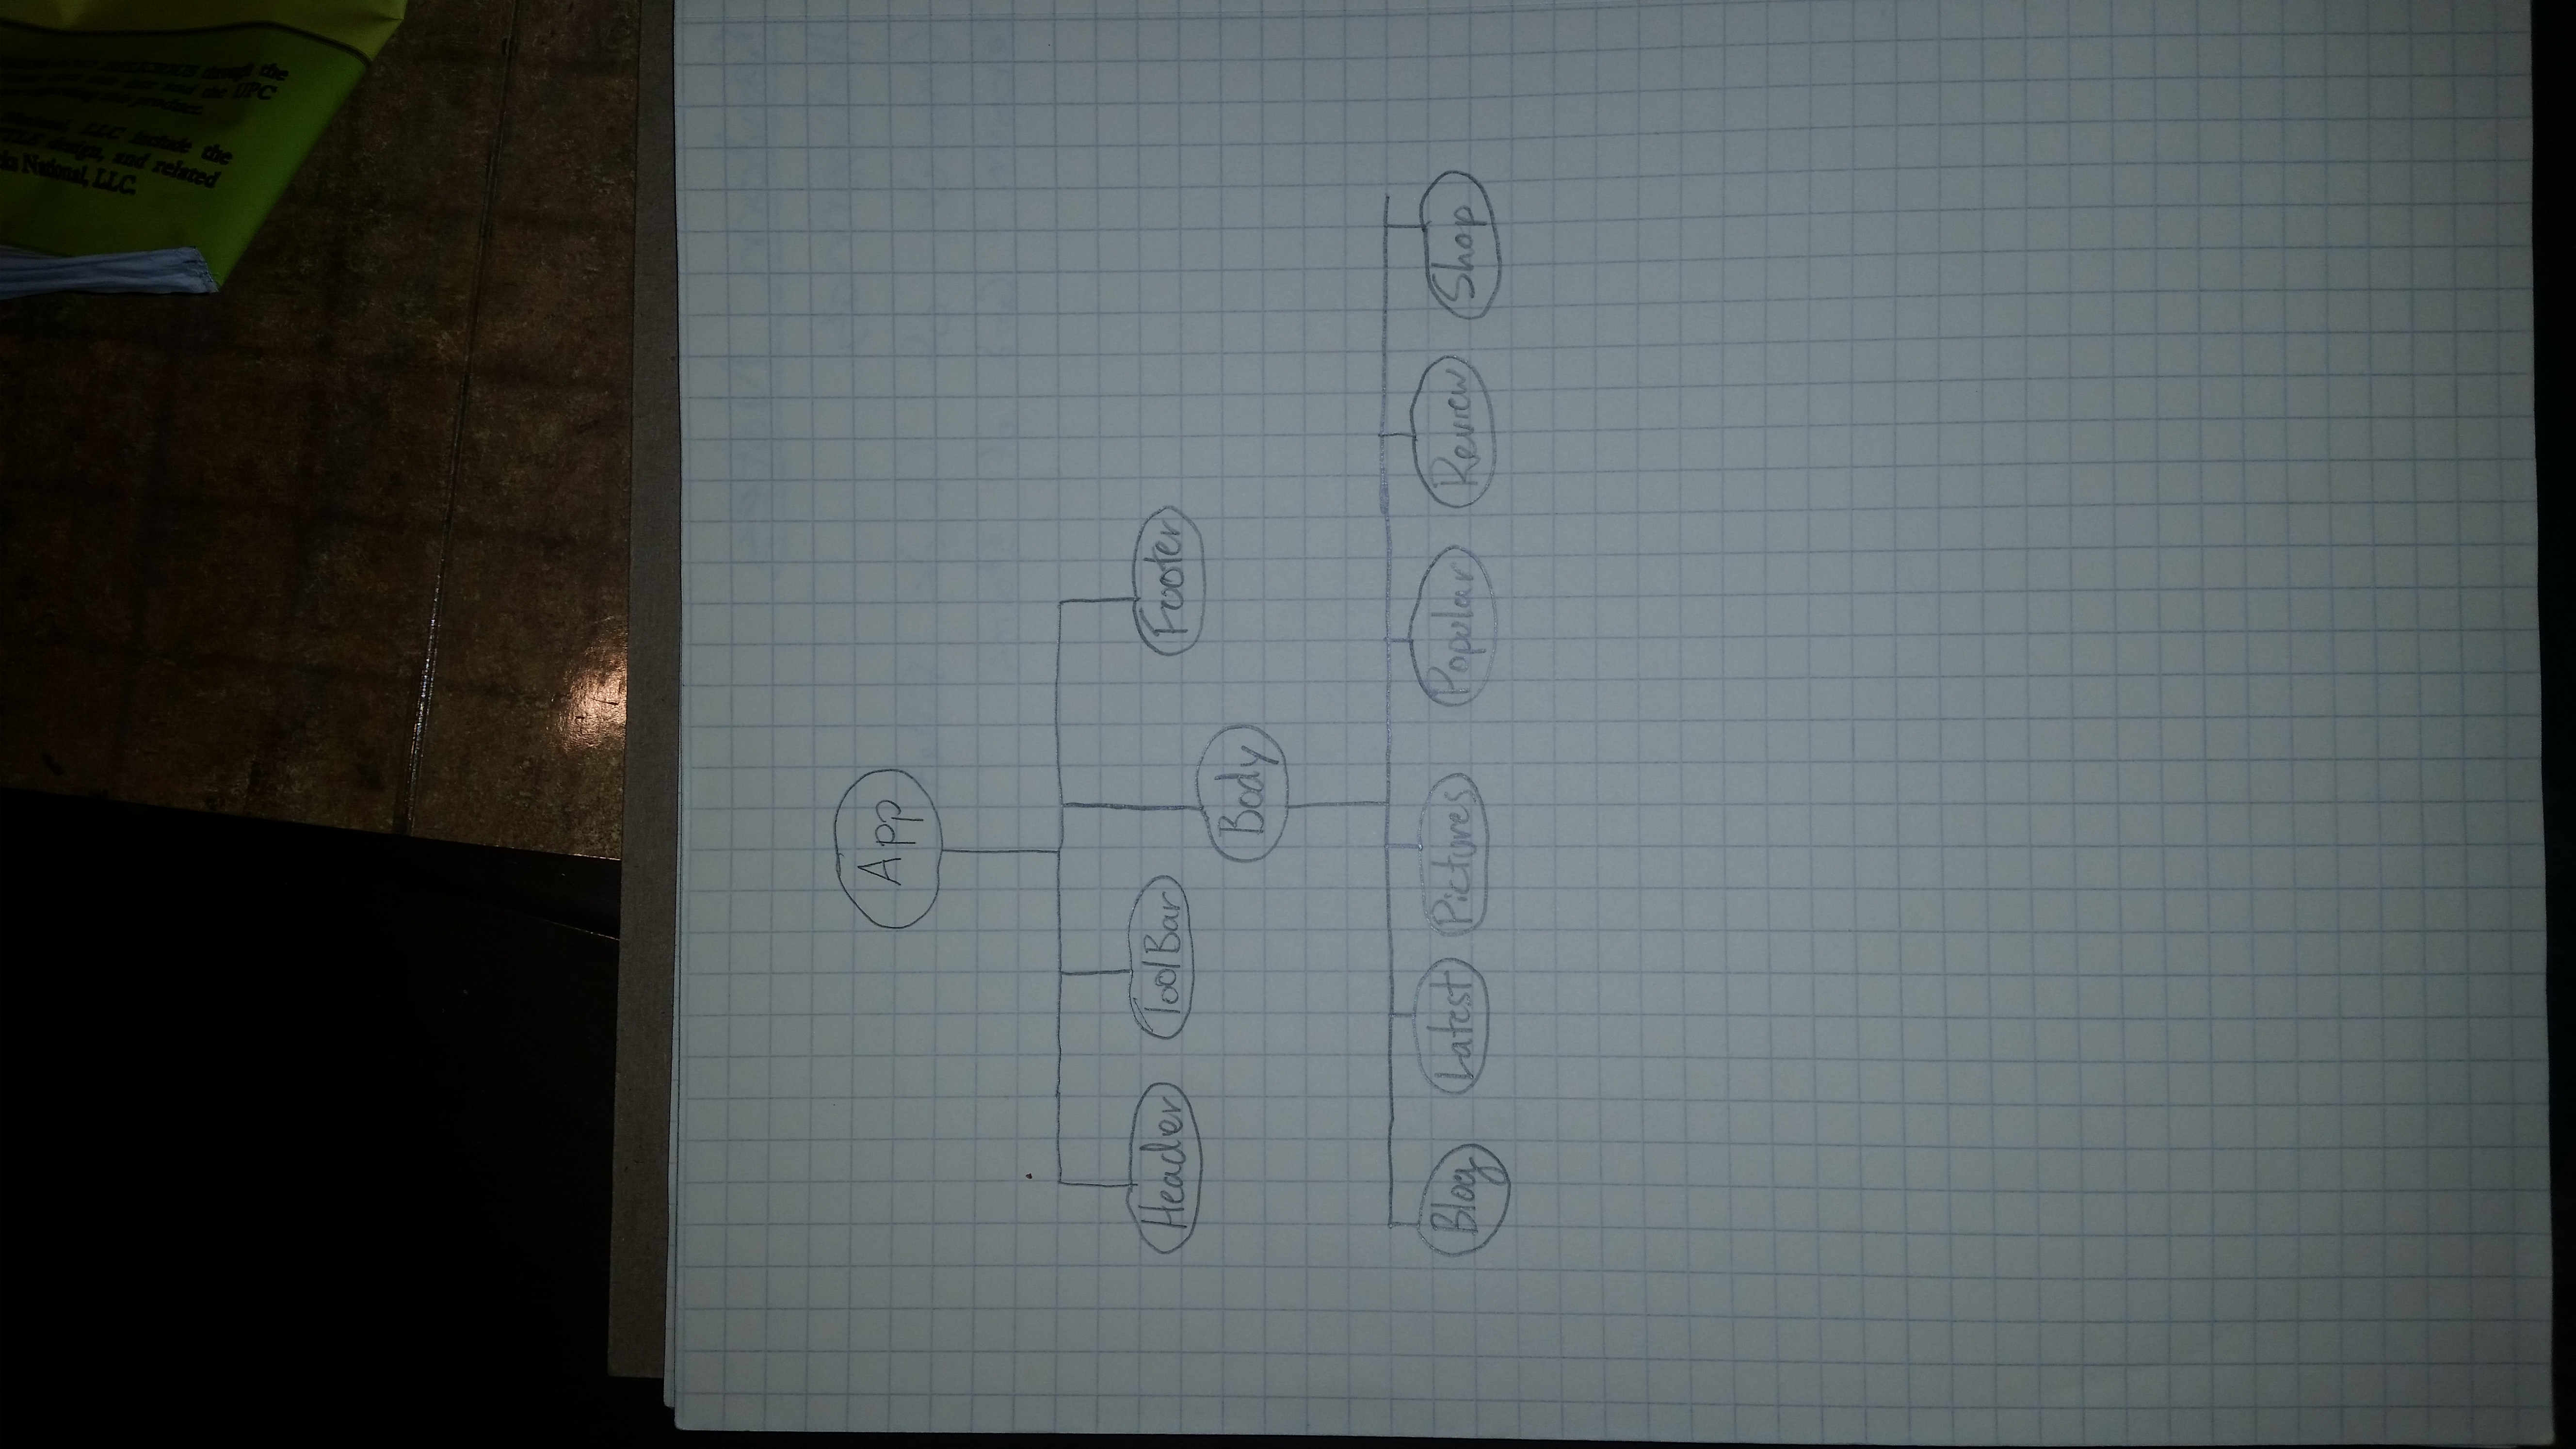 the
and the UPC
LLC include the
design, and related
National, LLC.
App
Header ToolBar Footer
Body
Blog Latest Pictures Popular Review Shop